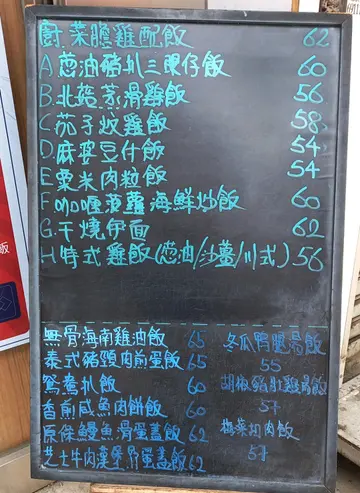 廚.菜膽雞配飯 62
A.葱油豬扒三眼仔飯 60
B.北菇蒸滑雞飯 56
C.茄子炆雞飯 58
D.麻婆豆付飯 54
E.粟米肉粒飯 54
F.咖喱菠蘿海鮮炒飯 60
G.干燒伊面 62
H.特式雞飯(葱油/沙薑/川式) 56
無骨海南雞油飯 65
泰式豬頸肉煎蛋飯 65
鴛鴦扒飯 60
香煎咸魚肉餅飯 60
原条鰻魚滑蛋蓋飯 62
芝士牛肉漢堡滑蛋蓋飯 62
冬瓜鴨腿湯飯
55
胡椒豬肚雞湯飯
57
梅菜扣肉飯
57